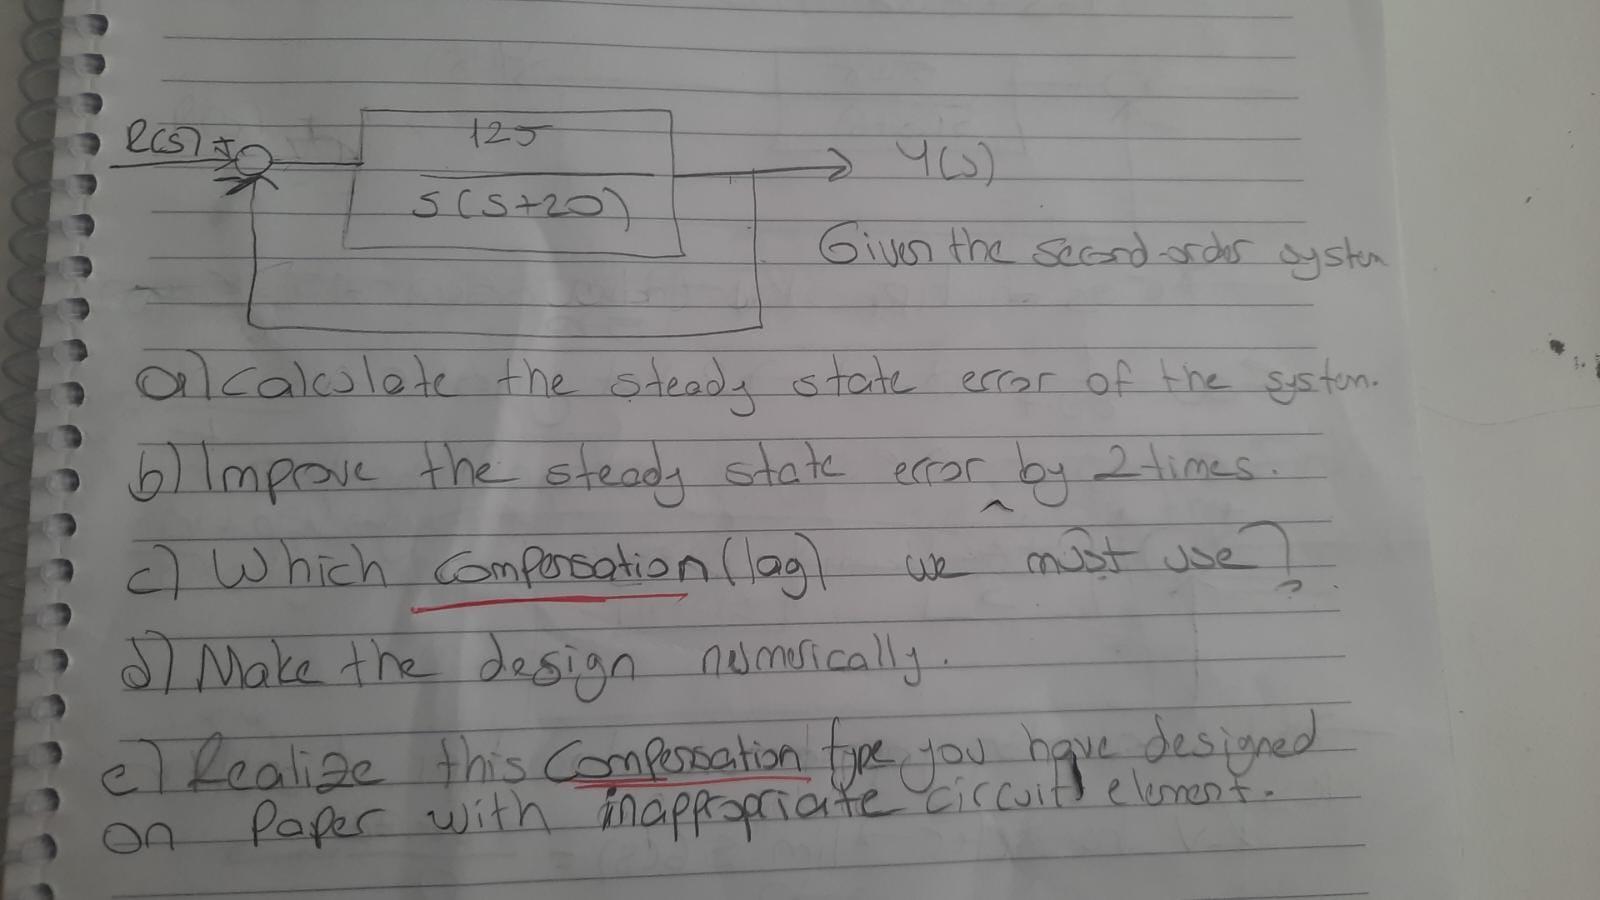 R(s) +
125
s(s+20)
Y(s)
Given the second-order system
a) Calculate the steady state error of the system.
b) Improve the steady state error by 2 times.
c) Which compensation (lag) we must use?
d) Make the design numerically.
e) Realize this compensation type you have designed
on paper with inappropriate circuit element.